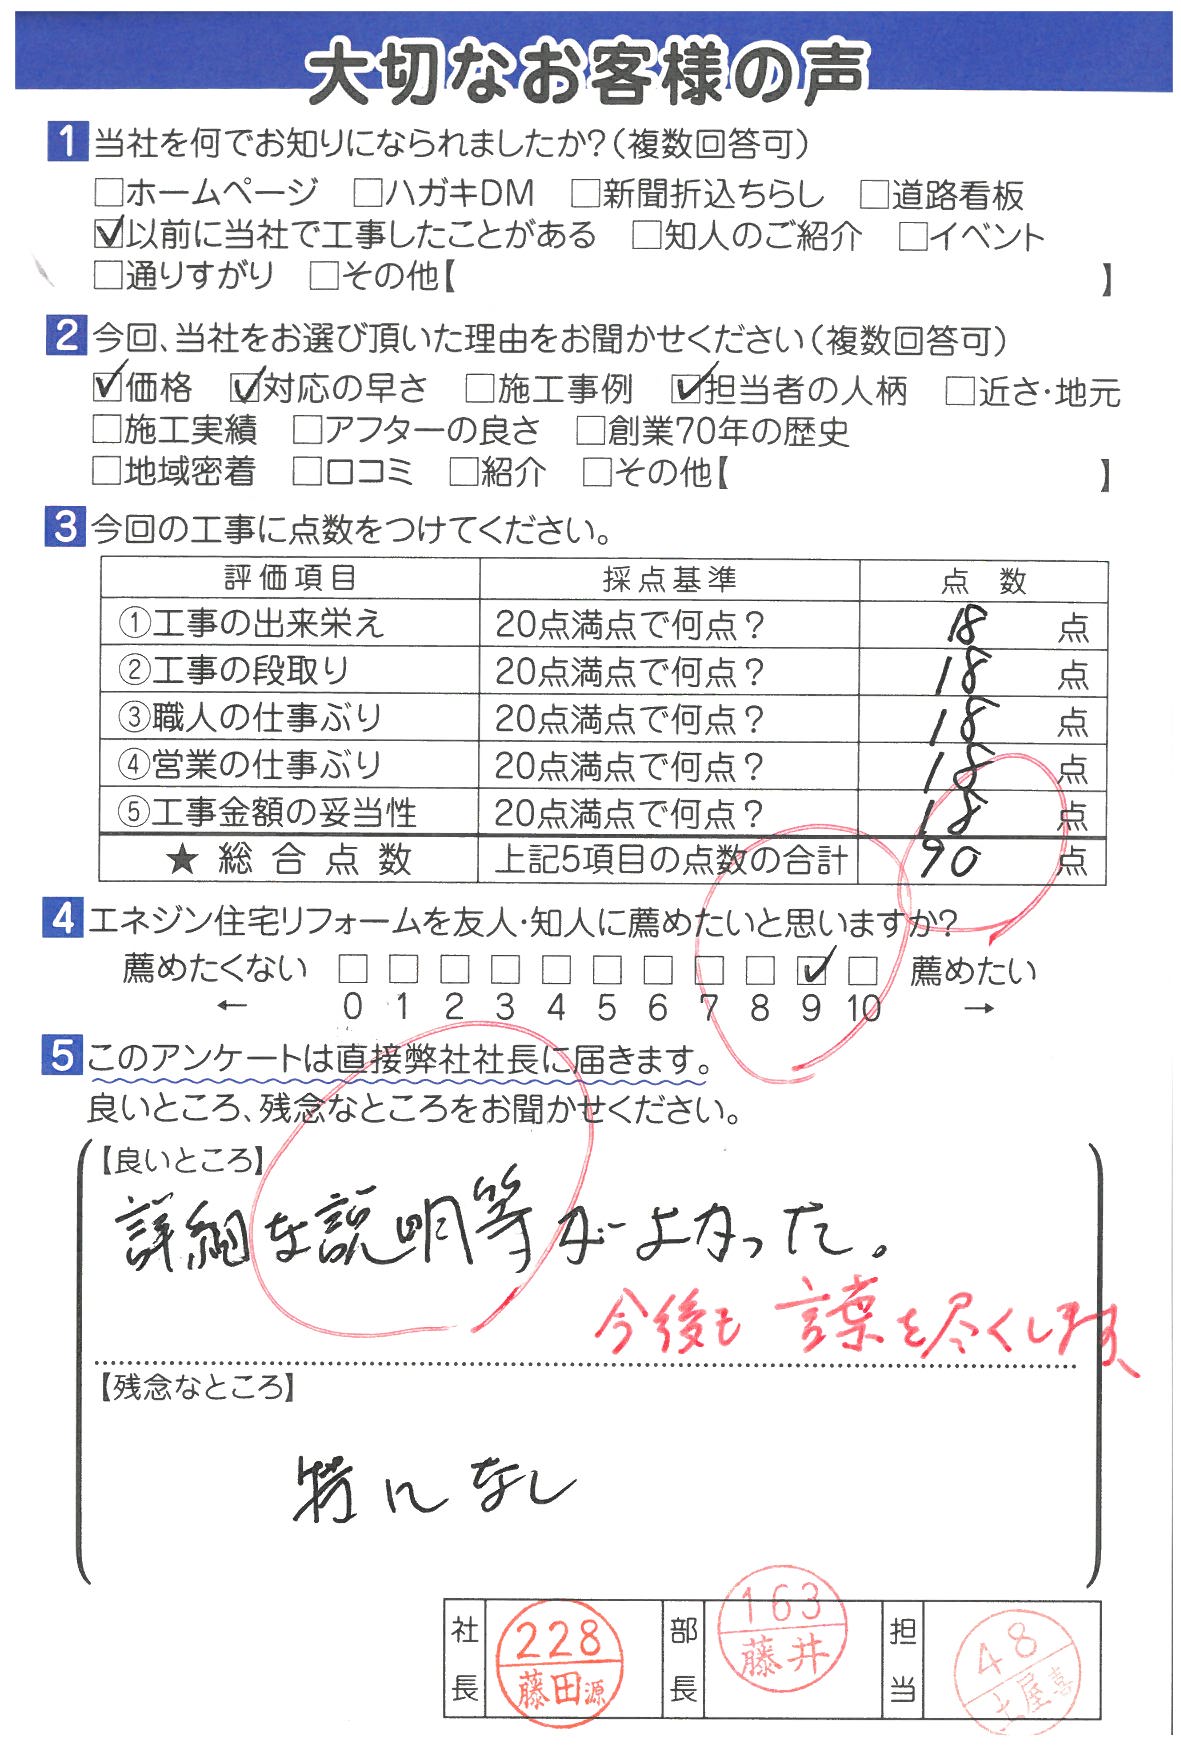 大切なお客様の声
1 当社を何でお知りになられましたか?(複数回答可)
□ホームページ □ハガキDM □新聞折込ちらし □道路看板
☑以前に当社で工事したことがある □知人のご紹介 □イベント
□通りすがり □その他【 】
2 今回、当社をお選び頂いた理由をお聞かせください(複数回答可)
☑価格 ☑対応の早さ □施工事例 ☑担当者の人柄 □近さ・地元
□施工実績 □アフターの良さ □創業70年の歴史
□地域密着 □口コミ □紹介 □その他【 】
3 今回の工事に点数をつけてください。
評価項目 採点基準 点数
①工事の出来栄え 20点満点で何点? 18 点
②工事の段取り 20点満点で何点? 18 点
③職人の仕事ぶり 20点満点で何点? 18 点
④営業の仕事ぶり 20点満点で何点? 18 点
⑤工事金額の妥当性 20点満点で何点? 18 点
★総合点数 上記5項目の点数の合計 90 点
4 エネジン住宅リフォームを友人・知人に薦めたいと思いますか?
薦めたくない □ □ □ □ □ □ □ □ □ ☑ □ 薦めたい
← 0 1 2 3 4 5 6 7 8 9 10 →
5 このアンケートは直接弊社社長に届きます。
良いところ、残念なところをお聞かせください。
【良いところ】
詳細な説明等がよかった。
今後も言葉を尽くします、
【残念なところ】
特になし
社長 228 藤田源 部長 163 藤井 担当 48 土屋喜